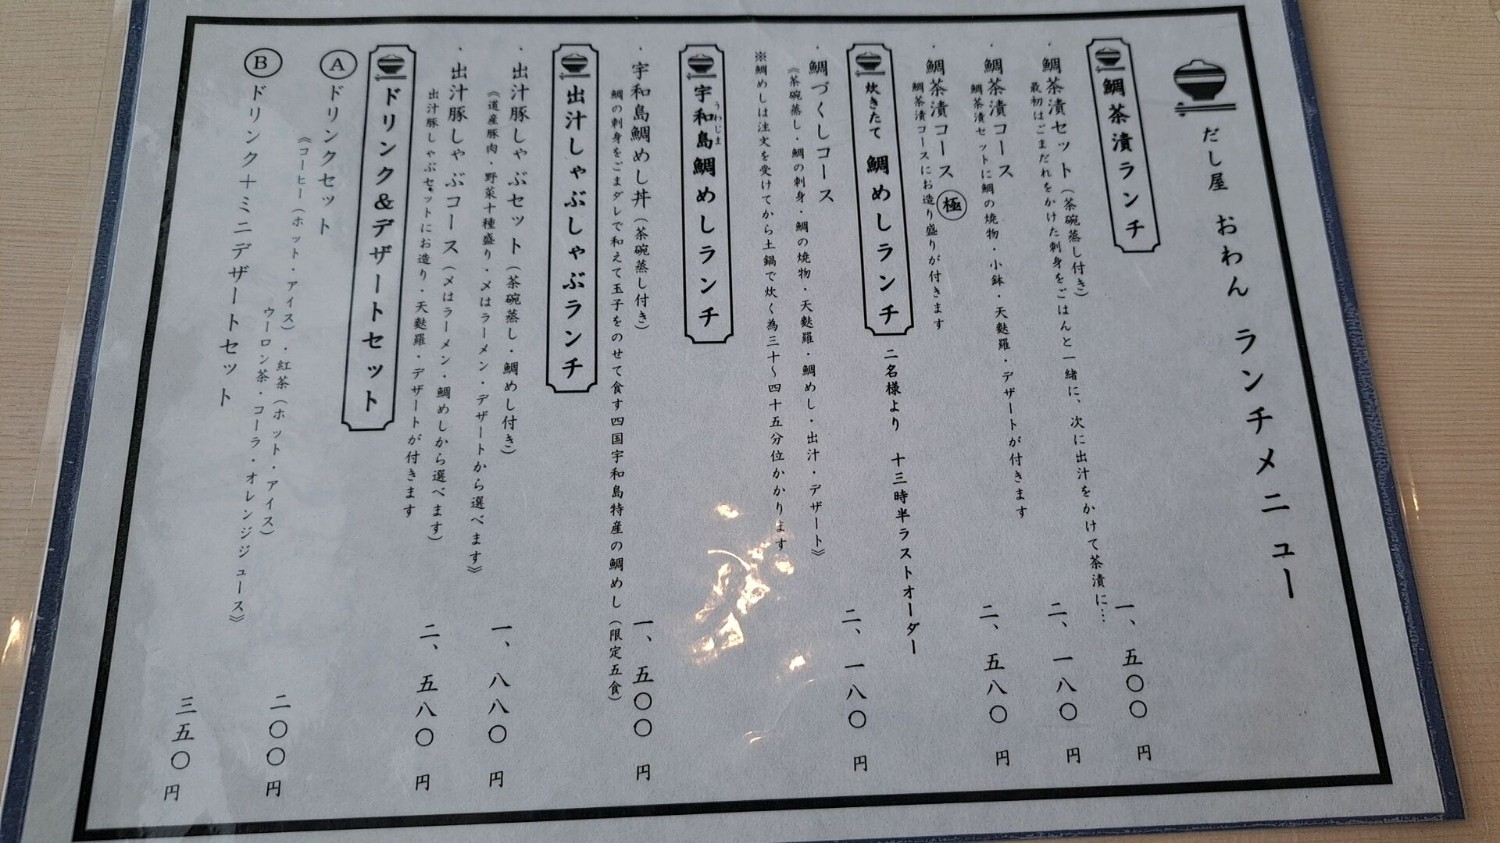 だし屋 おわん ランチメニュー
鯛茶漬ランチ
・鯛茶漬セット(茶碗蒸し付き) 一、五〇〇円
最初はごまだれをかけた刺身をごはんと一緒に、次に出汁をかけて茶漬に…
・鯛茶漬コース 二、一八〇円
鯛茶漬セットに鯛の焼物・小鉢・天麩羅・デザートが付きます
・鯛茶漬コース 極 二、五八〇円
鯛茶漬コースにお造り盛りが付きます
炊きたて 鯛めしランチ 二名様より 十三時半ラストオーダー
・鯛づくしコース 二、一八〇円
《茶碗蒸し・鯛の刺身・鯛の焼物・天麩羅・鯛めし・出汁・デザート》
※鯛めしは注文を受けてから土鍋で炊く為三十〜四十五分位かかります
うわじま
宇和島鯛めしランチ
・宇和島鯛めし丼(茶碗蒸し付き) 一、五〇〇円
鯛の刺身をごまダレで和えて玉子をのせて食す四国宇和島特産の鯛めし(限定五食)
出汁しゃぶしゃぶランチ
・出汁豚しゃぶセット(茶碗蒸し・鯛めし付き) 一、八八〇円
《道産豚肉・野菜十種盛り・〆はラーメン・デザートから選べます》
・出汁豚しゃぶコース(〆はラーメン・鯛めしから選べます) 二、五八〇円
出汁豚しゃぶセットにお造り・天麩羅・デザートが付きます
ドリンク&デザートセット
Ⓐドリンクセット 二〇〇円
《コーヒー(ホット・アイス)・紅茶(ホット・アイス)
ウーロン茶・コーラ・オレンジジュース》
Ⓑドリンク+ミニデザートセット 三五〇円